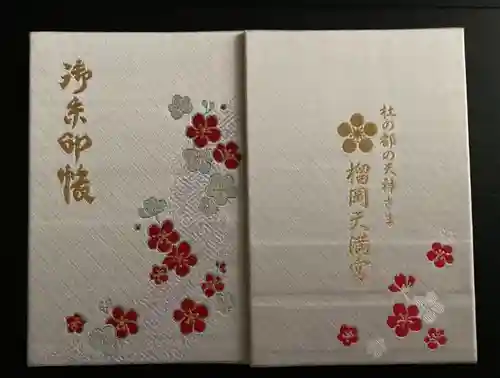 御朱印帳
杜の都の天神さま
榴岡天満宮